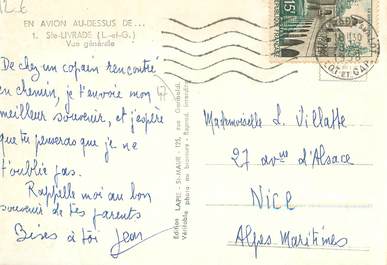 12 €
EN AVION AU-DESSUS DE...
1. Ste-LIVRADE (L.-et-G.)
Vue générale
De chez un copain rencontré
en chemin, je t'envoie mon
meilleur souvenir, et j'espère
que tu penseras que je ne
t'oublie pas.
Rappelle moi au bon
souvenir de tes parents
Bises à toi Jean
Edition LAPIE - St-MAUR - 125, rue Garibaldi
Véritable photo au bromure - Reprod. interdite
15
LOT ET GAR
Mademoiselle L. Villatte
27 avne d'Alsace
Nice
Alpes Maritimes